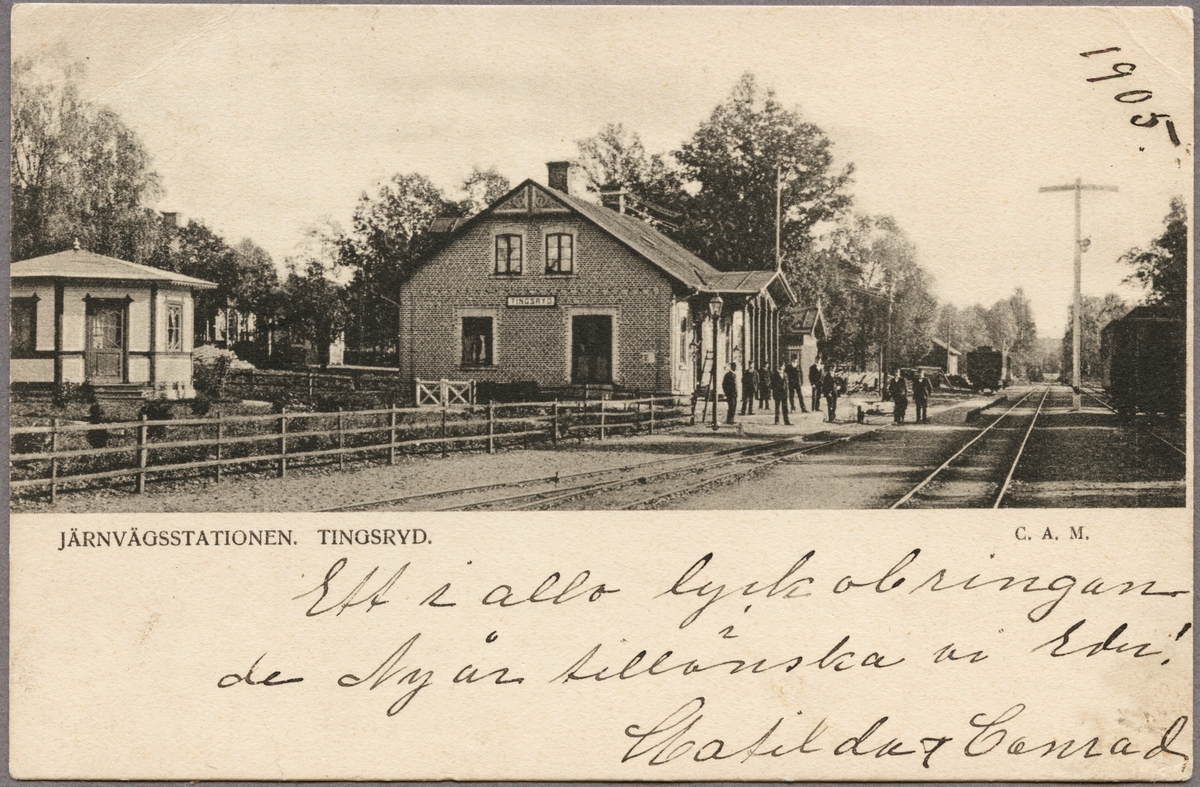 1905.
TINGSRYD
JÄRNVÄGSSTATIONEN. TINGSRYD.
C. A. M.
Ett i allo lyckobringan
de Nyår tillönska vi Eder!
Matilda & Conrad